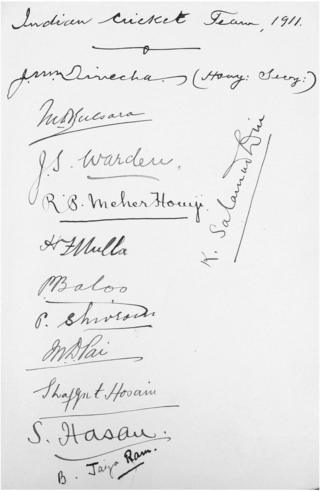 Indian Cricket Team, 1911.
J.M. Divecha (Hony: Secy:)
M.D. Bulsara
J.S. Warden.
R.P. Meher Homji
K. Salamud Din
H F Mulla
P Baloo
P. Shivram
M.D. Pai
Shafqat Hosain
S. Hasan.
B. Jaya Ram.